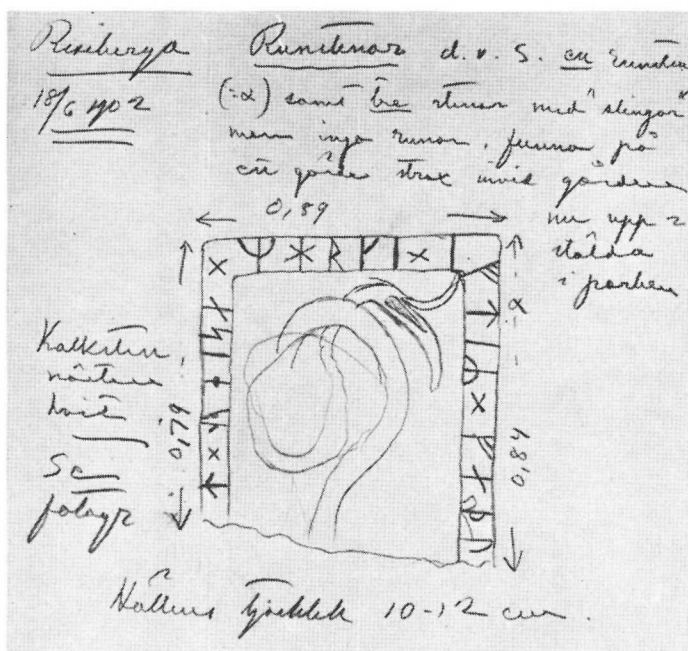 Riseberga
18/6 1902
Runstenar d. v. s. en runsten
(=α) samt tre stenar med "slingor"
men inga runor, funna på
en gärde strax invid gården
nu upp=
stälda
i parken
0,89
α
0,79
0,84
Kalksten
nästan
hvit
Se
fotogr
Hällens tjocklek 10-12 cm.